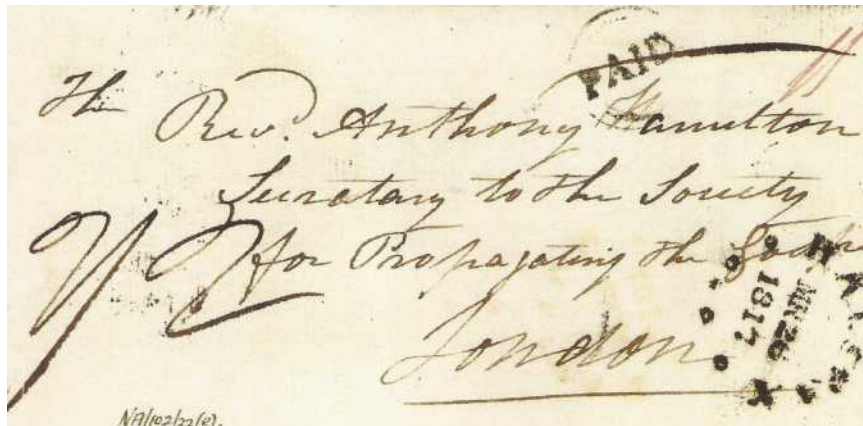 PAID
The
Revd. Anthony Hamilton
Secretary to the Society
for Propagating the Gosp
London
HALIFAX
MR 26
1817